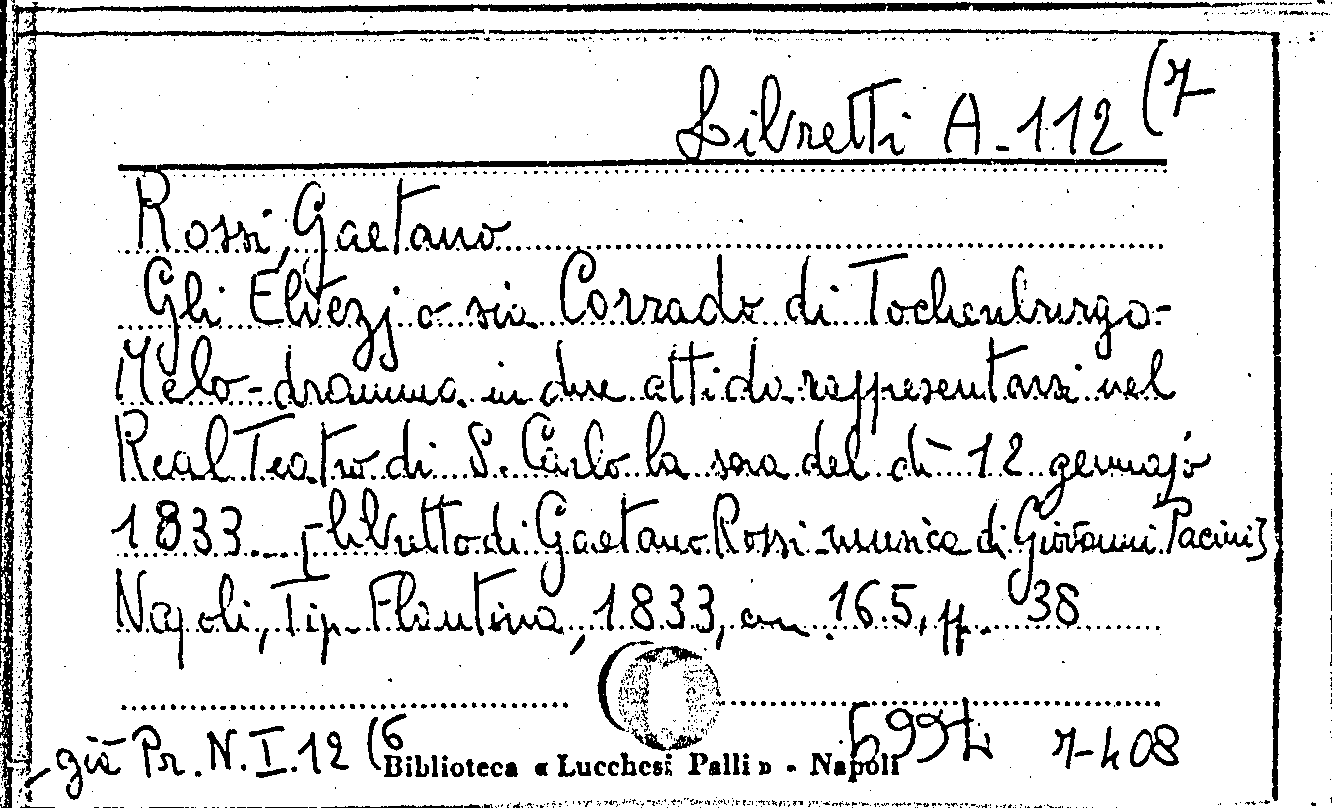 Libretti A-112 (7
Rossi, Gaetano
Gli Elvezj o sia Corrado di Tochemburgo-
Melo-dramma in due atti da rappresentarsi nel
Real Teatro di S. Carlo la sera del dì 12 gennajo
1833. - [libretto di Gaetano Rossi - musica di Giovanni Pacini]
Napoli, Tip. Flautina, 1833, cm. 16.5, pp. 38
già Pr. N. I. 12 (6
Biblioteca « Lucchesi Palli » - Napoli
7-408